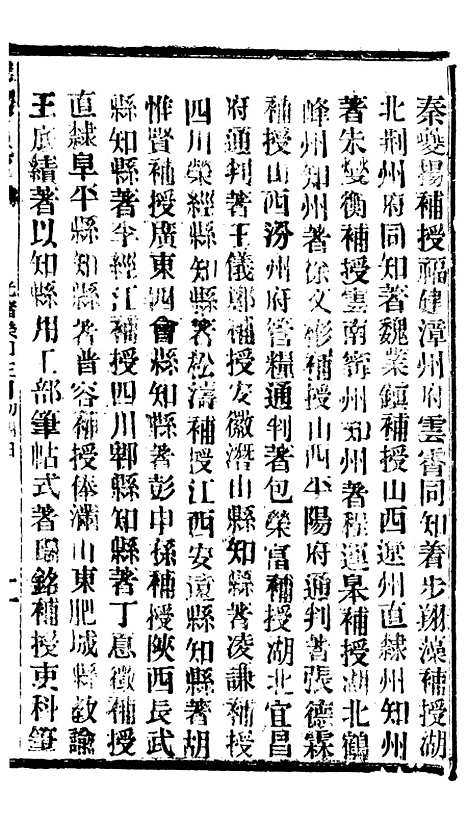 秦夔揚補授福建漳州府雲霄同知着步翔藻補授湖
北荆州府同知著魏業鎮補授山西遼州直隸州知州
著宋燮衡補授雲南甯州知州著程運皋補授湖北鶴
峰州知州著徐文彬補授山西平陽府通判著張德霖
補授山西汾州府管糧通判著包榮富補授湖北宜昌
府通判著王儀鄭補授安徽潛山縣知縣著凌謙補授
四川榮經縣知縣著松濤補授江西安遠縣知縣著胡
惟賢補授廣東四會縣知縣著彭申孫補授陝西長武
縣知縣著李經江補授四川郫縣知縣著丁息徵補授
直隸阜平縣知縣著普容補授俸滿山東肥城縣教諭
王底績著以知縣用工部筆帖式著瑞銘補授吏科筆